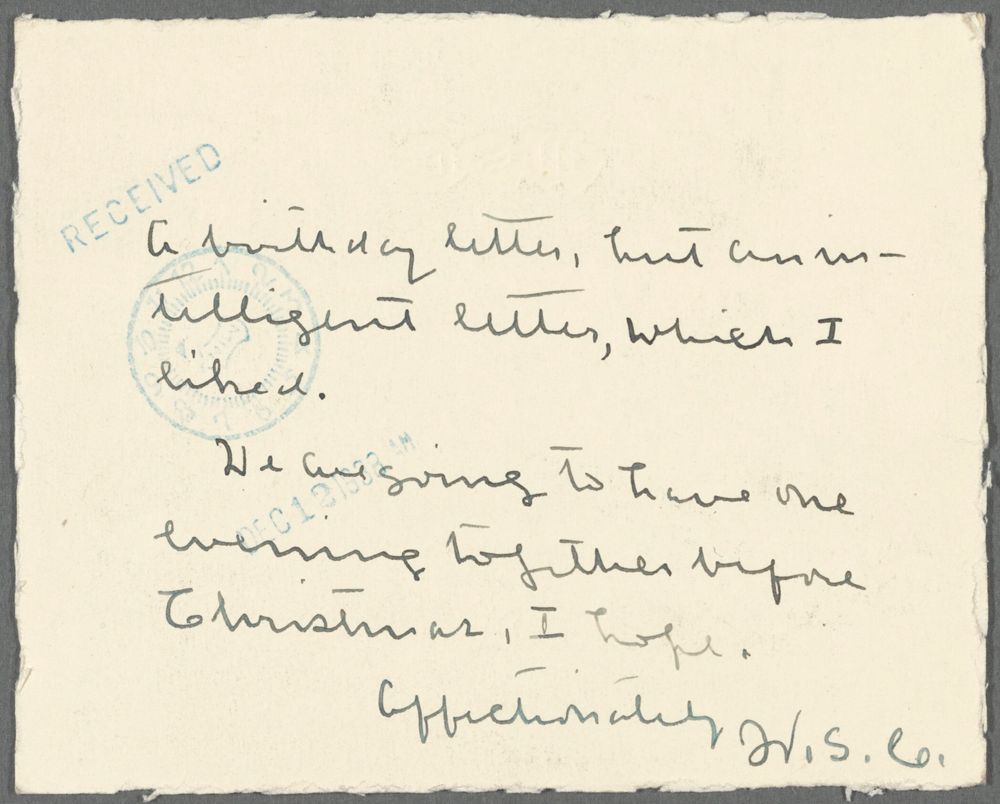 RECEIVED
a birthday letter, but an in-
telligent letter, which I
liked.
We are going to have one
DEC 13 1938 AM
evening together before
Christmas, I hope.
Affectionately
W.S.C.